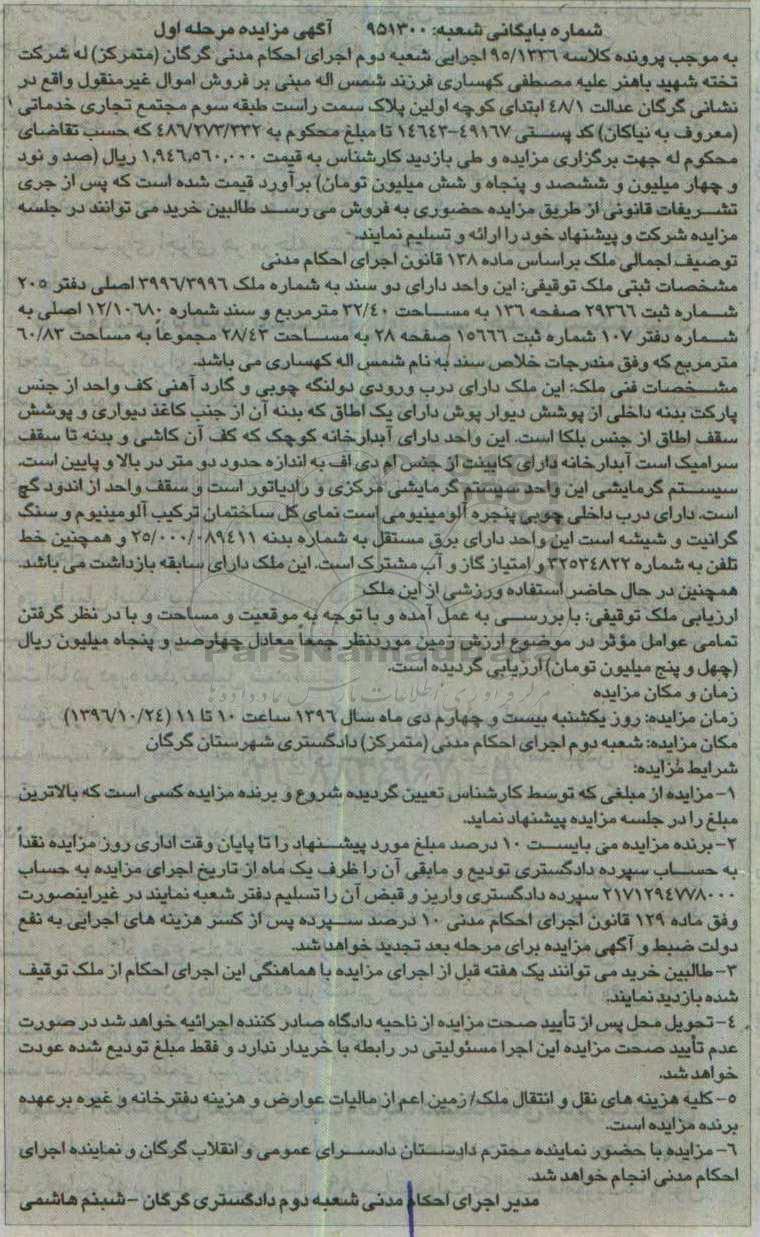 شماره بایگانی شعبه: ۹۵۱۳۰۰ آگهی مزایده مرحله اول
به موجب پرونده کلاسه ۹۵/۱۳۳۶ اجرایی شعبه دوم اجرای احکام مدنی گرگان (متمرکز) له شرکت
تخته شهید باهنر علیه مصطفی کهساری فرزند شمس اله مبنی بر فروش اموال غیرمنقول واقع در
نشانی گرگان عدالت ۴۸/۱ ابتدای کوچه اولین پلاک سمت راست طبقه سوم مجتمع تجاری خدماتی
(معروف به نیاکان) کد پستی ۴۹۱۶۷-۱۴۶۴۳ تا مبلغ محکوم به ۴۸۶/۲۷۳/۳۳۲ که حسب تقاضای
محکوم له جهت برگزاری مزایده و طی بازدید کارشناس به قیمت ۱,۹۴۶,۵۶۰,۰۰۰ ریال (صد و نود
و چهار میلیون و ششصد و پنجاه و شش میلیون تومان) برآورد قیمت شده است که پس از جری
تشریفات قانونی از طریق مزایده حضوری به فروش می رسد طالبین خرید می توانند در جلسه
مزایده شرکت و پیشنهاد خود را ارائه و تسلیم نمایند.
توصیف اجمالی ملک براساس ماده ۱۳۸ قانون اجرای احکام مدنی
مشخصات ثبتی ملک توقیفی: این واحد دارای دو سند به شماره ملک ۳۹۹۶/۳۹۹۶ اصلی دفتر ۲۰۵
شماره ثبت ۲۹۳۶۶ صفحه ۱۳۶ به مساحت ۳۲/۴۰ مترمربع و سند شماره ۱۲/۱۰۶۸۰ اصلی به
شماره دفتر ۱۰۷ شماره ثبت ۱۵۶۶۶ صفحه ۲۸ به مساحت ۲۸/۴۳ مجموعاً به مساحت ۶۰/۸۳
مترمربع که وفق مندرجات خلاص سند به نام شمس اله کهساری می باشد.
مشخصات فنی ملک: این ملک دارای درب ورودی دولنگه چوبی و گارد آهنی کف واحد از جنس
پارکت بدنه داخلی از پوشش دیوار پوش دارای یک اطاق که بدنه آن از جنب کاغذ دیواری و پوشش
سقف اطاق از جنس بلکا است. این واحد دارای آبدارخانه کوچک که کف آن کاشی و بدنه تا سقف
سرامیک است آبدارخانه دارای کابینت از جنس ام دی اف به اندازه حدود دو متر در بالا و پایین است.
سیستم گرمایشی این واحد سیستم گرمایشی مرکزی و رادیاتور است و سقف واحد از اندود گچ
است. دارای درب داخلی چوبی پنجره آلومینیومی است نمای کل ساختمان ترکیب آلومینیوم و سنگ
گرانیت و شیشه است این واحد دارای برق مستقل به شماره بدنه ۲۵/۰۰۰/۰۸۹۴۱۱ و همچنین خط
تلفن به شماره ۳۲۵۳۴۸۲۲ و امتیاز گاز و آب مشترک است. این ملک دارای سابقه بازداشت می باشد.
همچنین در حال حاضر استفاده ورزشی از این ملک
ارزیابی ملک توقیفی: با بررسی به عمل آمده و با توجه به موقعیت و مساحت و با در نظر گرفتن
تمامی عوامل مؤثر در موضوع ارزش زمین موردنظر جمعاً معادل چهارصد و پنجاه میلیون ریال
(چهل و پنج میلیون تومان) ارزیابی گردیده است.
زمان و مکان مزایده
زمان مزایده: روز یکشنبه بیست و چهارم دی ماه سال ۱۳۹۶ ساعت ۱۰ تا ۱۱ (۱۳۹۶/۱۰/۲۴)
مکان مزایده: شعبه دوم اجرای احکام مدنی (متمرکز) دادگستری شهرستان گرگان
شرایط مزایده:
۱- مزایده از مبلغی که توسط کارشناس تعیین گردیده شروع و برنده مزایده کسی است که بالاترین
مبلغ را در جلسه مزایده پیشنهاد نماید.
۲- برنده مزایده می بایست ۱۰ درصد مبلغ مورد پیشنهاد را تا پایان وقت اداری روز مزایده نقداً
به حساب سپرده دادگستری تودیع و مابقی آن را ظرف یک ماه از تاریخ اجرای مزایده به حساب
۲۱۷۱۲۹۴۷۷۸۰۰۰ سپرده دادگستری واریز و قبض آن را تسلیم دفتر شعبه نمایند در غیراینصورت
وفق ماده ۱۲۹ قانون اجرای احکام مدنی ۱۰ درصد سپرده پس از کسر هزینه های اجرایی به نفع
دولت ضبط و آگهی مزایده برای مرحله بعد تجدید خواهد شد.
۳- طالبین خرید می توانند یک هفته قبل از اجرای مزایده با هماهنگی این اجرای احکام از ملک توقیف
شده بازدید نمایند.
۴- تحویل محل پس از تأیید صحت مزایده از ناحیه دادگاه صادر کننده اجرائیه خواهد شد در صورت
عدم تأیید صحت مزایده این اجرا مسئولیتی در رابطه با خریدار ندارد و فقط مبلغ تودیع شده عودت
خواهد شد.
۵- کلیه هزینه های نقل و انتقال ملک/ زمین اعم از مالیات عوارض و هزینه دفترخانه و غیره برعهده
برنده مزایده است.
۶- مزایده با حضور نماینده محترم دادستان دادسرای عمومی و انقلاب گرگان و نماینده اجرای
احکام مدنی انجام خواهد شد.
مدیر اجرای احکام مدنی شعبه دوم دادگستری گرگان - شبنم هاشمی